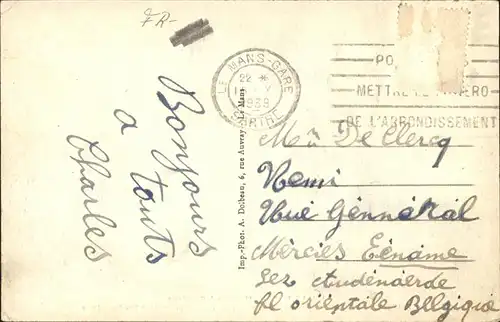 FR-
LE MANS-GARE
22 *
1939
SARTHE
PO
METTRE LE NUMERO
DE L'ARRONDISSEMENT
Bonjours
a touts
Charles
Imp.-Phot. A. Dolbeau, 6, rue Auvray, Le Mans
Mr De Clercq
Remi
Rue Génnéral
Mercies Eename
Lez Audenaerde
fl orientale Belgique